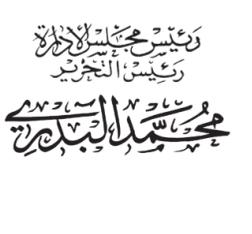 رئيس مجلس الإدارة
رئيس التحرير
محمد البدري